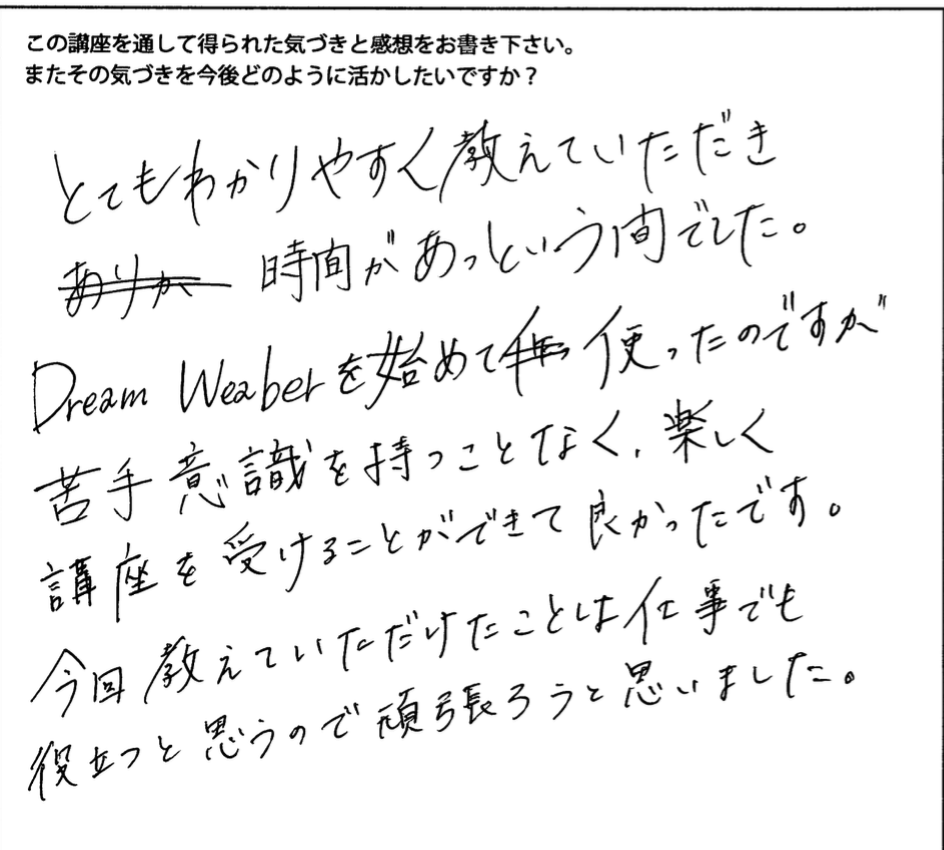 この講座を通して得られた気づきと感想をお書き下さい。
またその気づきを今後どのように活かしたいですか？
とてもわかりやすく教えていただき
ありが 時間があっという間でした。
Dream Weaberを始めて使ったのですが
苦手意識を持つことなく、楽しく
講座を受けることができて良かったです。
今回教えていただけたことは仕事でも
役立つと思うので頑張ろうと思いました。